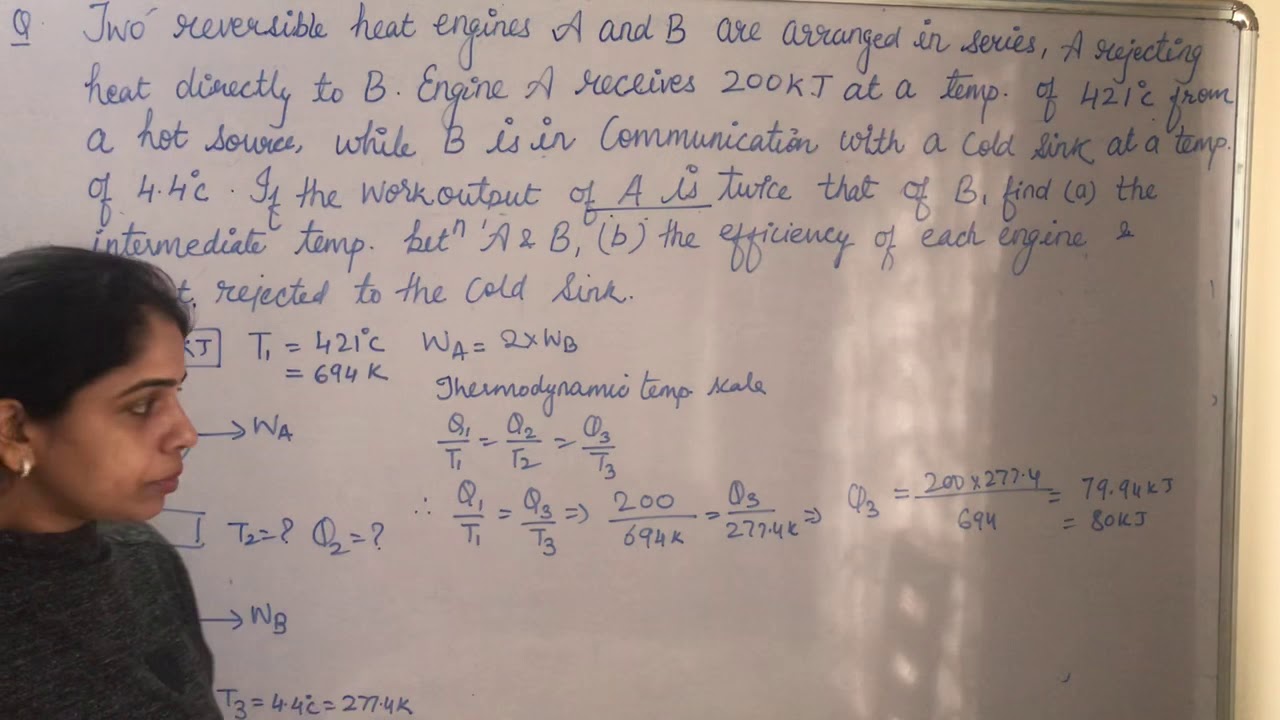 Q Two reversible heat engines A and B are arranged in series, A rejecting
heat directly to B. Engine A receives 200KJ at a temp. of 421°C from
a hot source, while B is in Communication with a cold sink at a temp.
of 4.4°C. If the work output of A is twice that of B, find (a) the
intermediate temp. betⁿ A & B, (b) the efficiency of each engine &
t rejected to the cold sink.
KJ T₁ = 421°C W_A = 2×W_B
= 694 K
Thermodynamic temp scale
→ W_A
Q₁/T₁ = Q₂/T₂ = Q₃/T₃
∴ Q₁/T₁ = Q₃/T₃ ⇒ 200/694K = Q₃/277.4K ⇒ Q₃ = 200×277.4/694 = 79.94KJ
= 80KJ
T₂=? Q₂=?
→ W_B
T₃ = 4.4°C = 277.4K